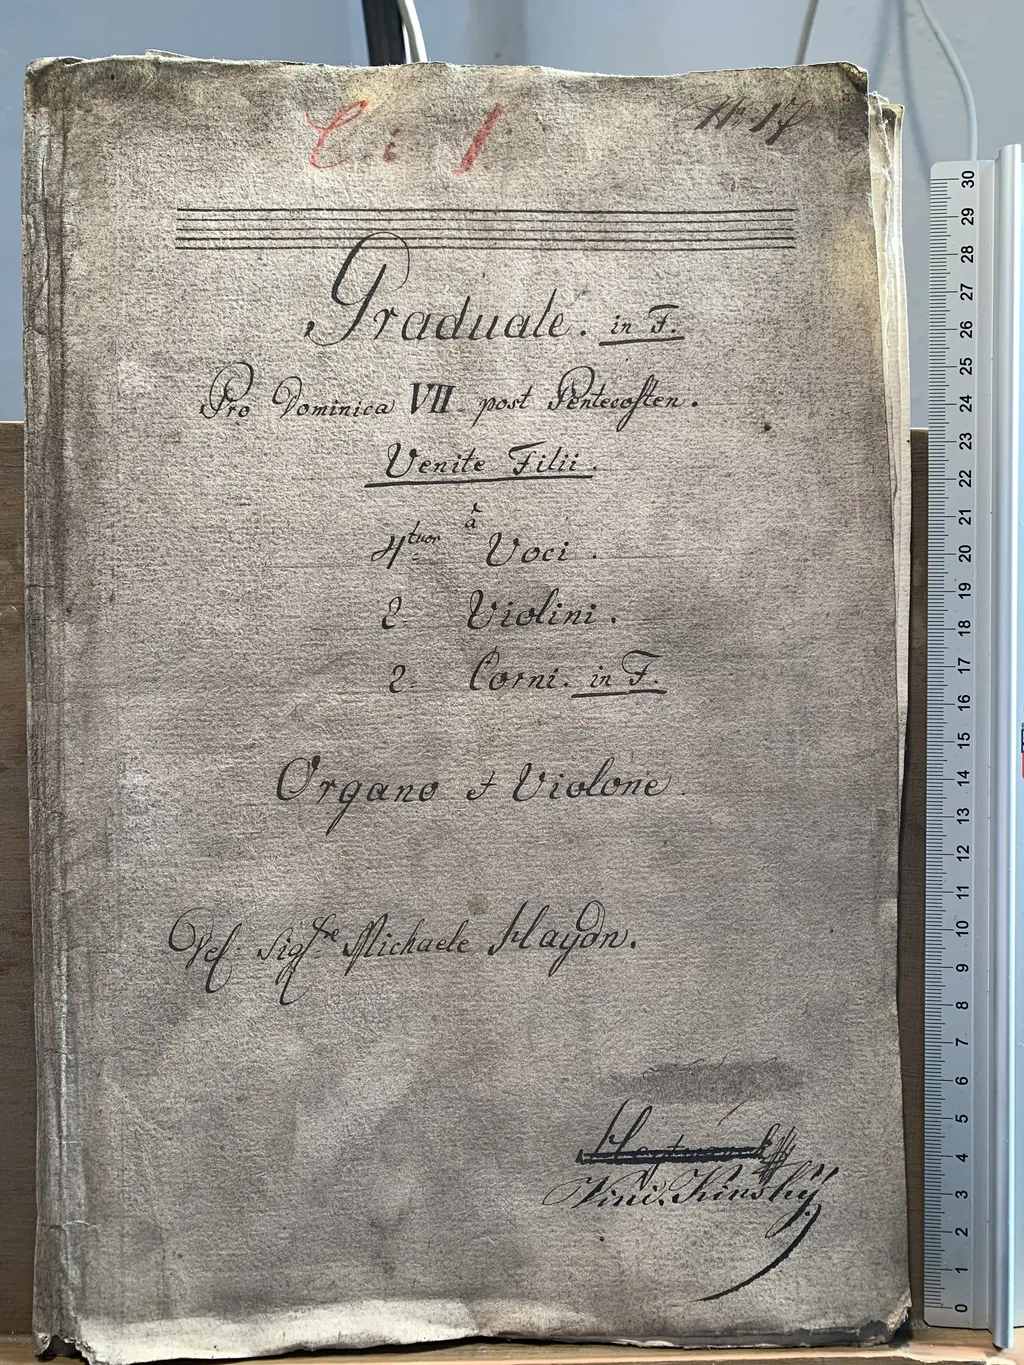 C. i. 1
Nr. 17
Graduale. in F.
Pro Dominica VII post Pentecosten.
Venite Filii.
à
4tuor Voci.
2 Violini.
2. Corni. in F.
Organo et Violone
Del Sigre Michaele Haydn.
30
29
28
27
26
25
24
23
22
21
20
19
18
17
16
15
14
13
12
11
10
9
8
7
6
5
4
3
2
1
0